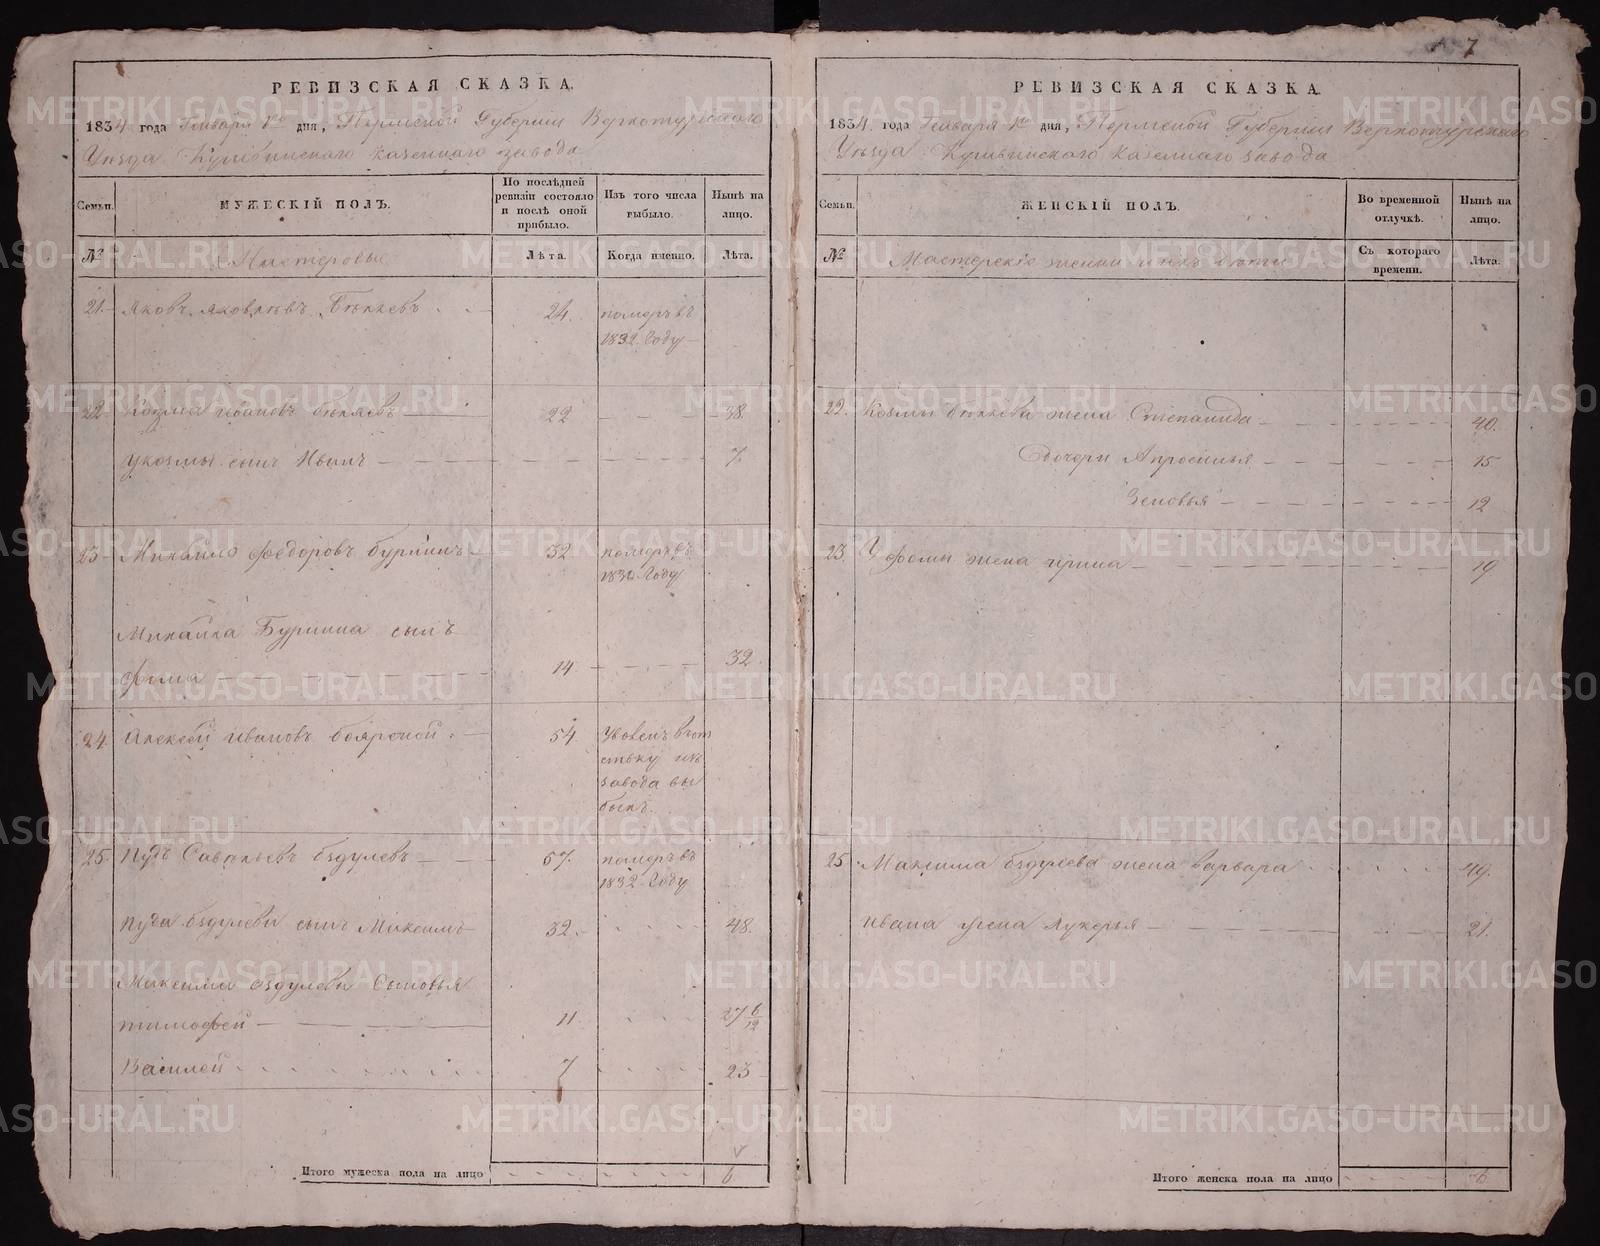 7
РЕВИЗСКАЯ СКАЗКА.
1834 года Генваря 1го дня, Пермской Губернии Верхотурскаго
Уѣзда Кушвинскаго казеннаго завода
Семьи.
МУЖЕСКІЙ ПОЛЪ.
По послѣдней ревизіи состояло и послѣ оной прибыло.
Изъ того числа выбыло.
Нынѣ на лицо.
№
Мастеровые
Лѣта.
Когда именно.
Лѣта.
21. Яковъ Яковлевъ 24. померъ въ
1832 Году
22 Козма Ивановъ 22 38
У козмы сынъ Иванъ 7.
23 Михайло Федоровъ Буринъ 32 померъ въ
Году
Михайла Бурина сынъ
Фома 14 32
24 Алексей Ивановъ боярской 54
завода вы
былъ.
25. Пудъ Савельевъ бздулевъ 67. померъ въ
1832 Году
Пуда бздулева сынъ Максимъ 32. 48.
Максима бздулева Сыновья
тимофей 11 27 6/12
Василей 7 23
Итого мужеска пола на лицо 6
РЕВИЗСКАЯ СКАЗКА.
1834 года Генваря 1го дня, Пермской Губернии Верхотурскаго
Уѣзда Кушвинскаго Казеннаго завода
Семьи.
ЖЕНСКІЙ ПОЛЪ.
Во временной отлучкѣ.
Нынѣ на лицо.
№
Мастерскіе женки и ихъ дети
Съ котораго времени.
Лѣта.
22. Козмы жена Степанида 40.
дочери Апросинья 15
Зеновья 12
23. У фомы жена ирина 19
25 Максима бздулева жена варвара 49.
ивана жена Лукерья 21.
Итого женска пола на лицо 6
METRIKI.GASO-URAL.RU